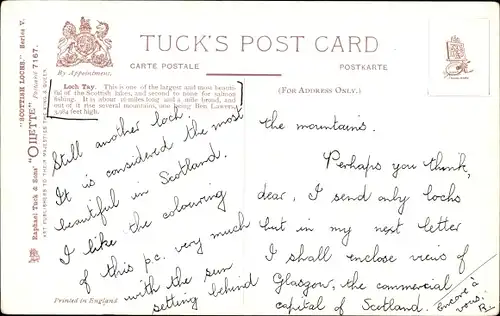 "SCOTTISH LOCHS." Series V.
"OILETTE" Postcard 7167.
Raphael Tuck & Sons'
ART PUBLISHERS TO THEIR MAJESTIES THE KING & QUEEN
By Appointment.
TUCK'S POST CARD
CARTE POSTALE
POSTKARTE
(FOR ADDRESS ONLY.)
Loch Tay. This is one of the largest and most beauti-
ful of the Scottish lakes, and second to none for salmon
fishing. It is about 15 miles long and a mile broad, and
out of it rise several mountains, one being Ben Lawers,
feet high.
Still another loch;
It is considered the most
beautiful in Scotland.
I like the colouring
of this p.c. very much
with the sun
setting behind
the mountains.
Perhaps you think,
dear, I send only lochs
but in my next letter
I shall enclose views of
Glasgow, the commercial
capital of Scotland.
encore à
vous.
R.
Printed in England